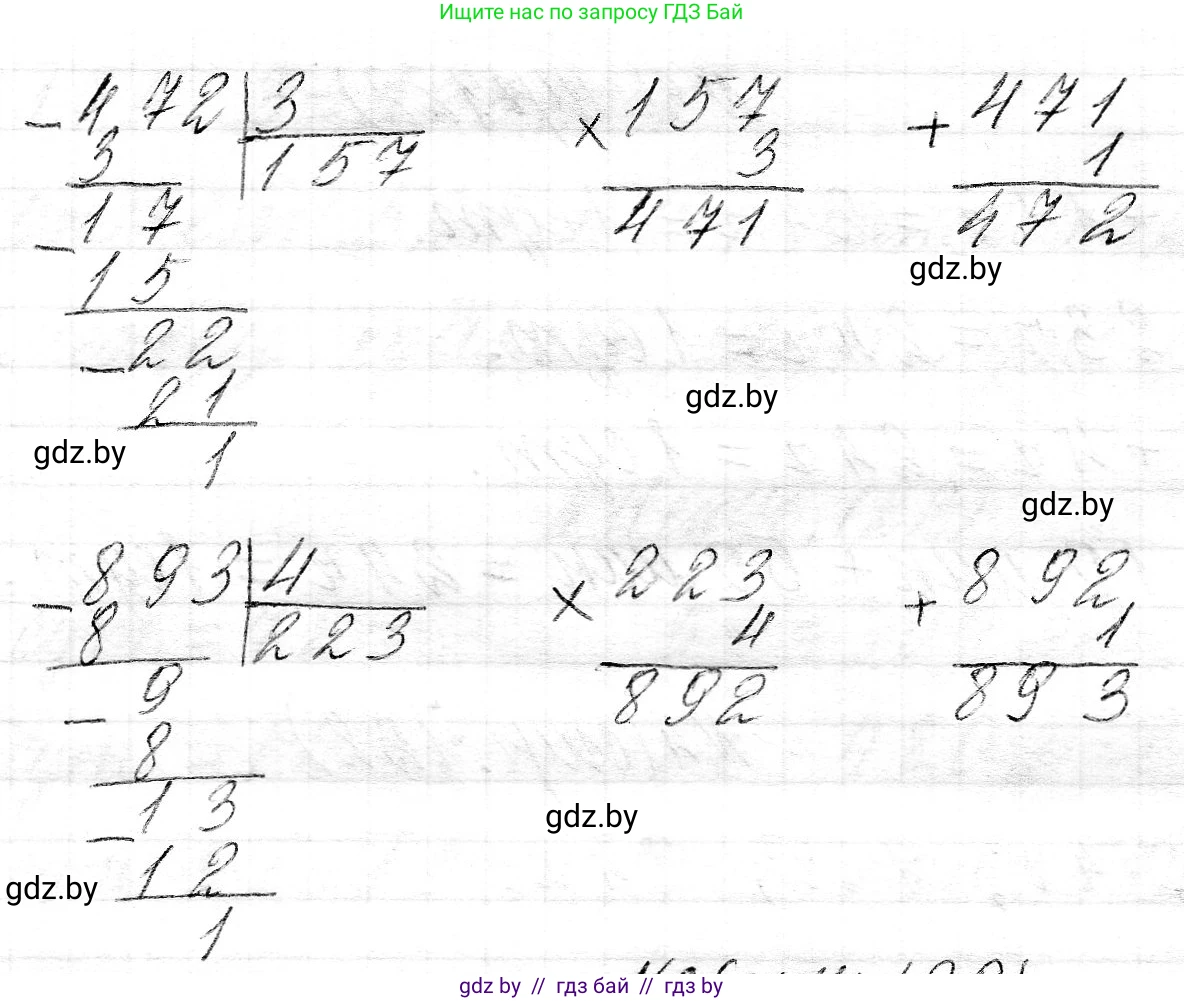 Ищите нас по запросу ГДЗ Бай
- 472 | 3
3 | 157
- 17
15
- 22
21
1
× 157
3
471
+ 471
1
472
gdz.by
gdz.by
gdz.by
gdz.by
- 893 | 4
8 | 223
- 9
8
- 13
12
1
× 223
4
892
+ 892
1
893
gdz.by
gdz.by
gdz by // гдз бай // гдз by